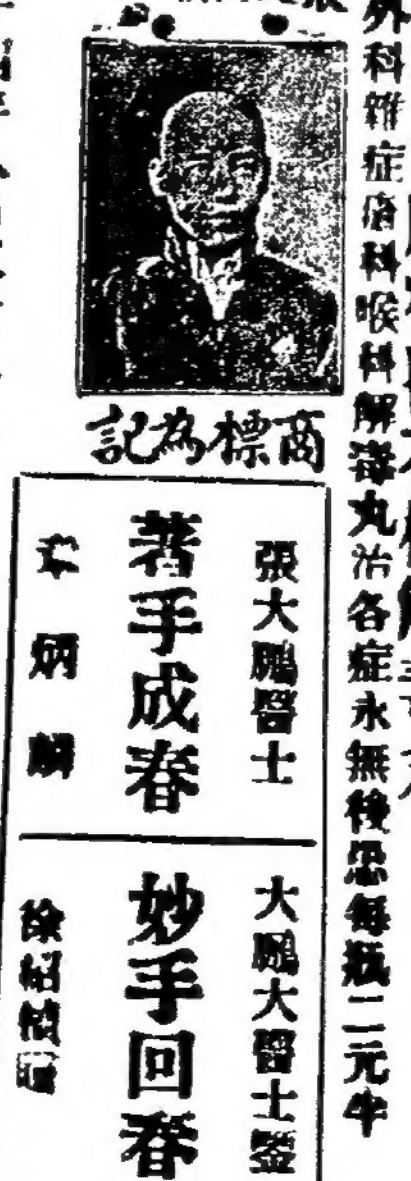 外科雜症瘡科喉科解毒丸治各症永無後患每瓶二元半
商標為記
張大鵬醫士
著手成春
章炳麟
大鵬大醫士鑒
妙手回春
徐紹楨